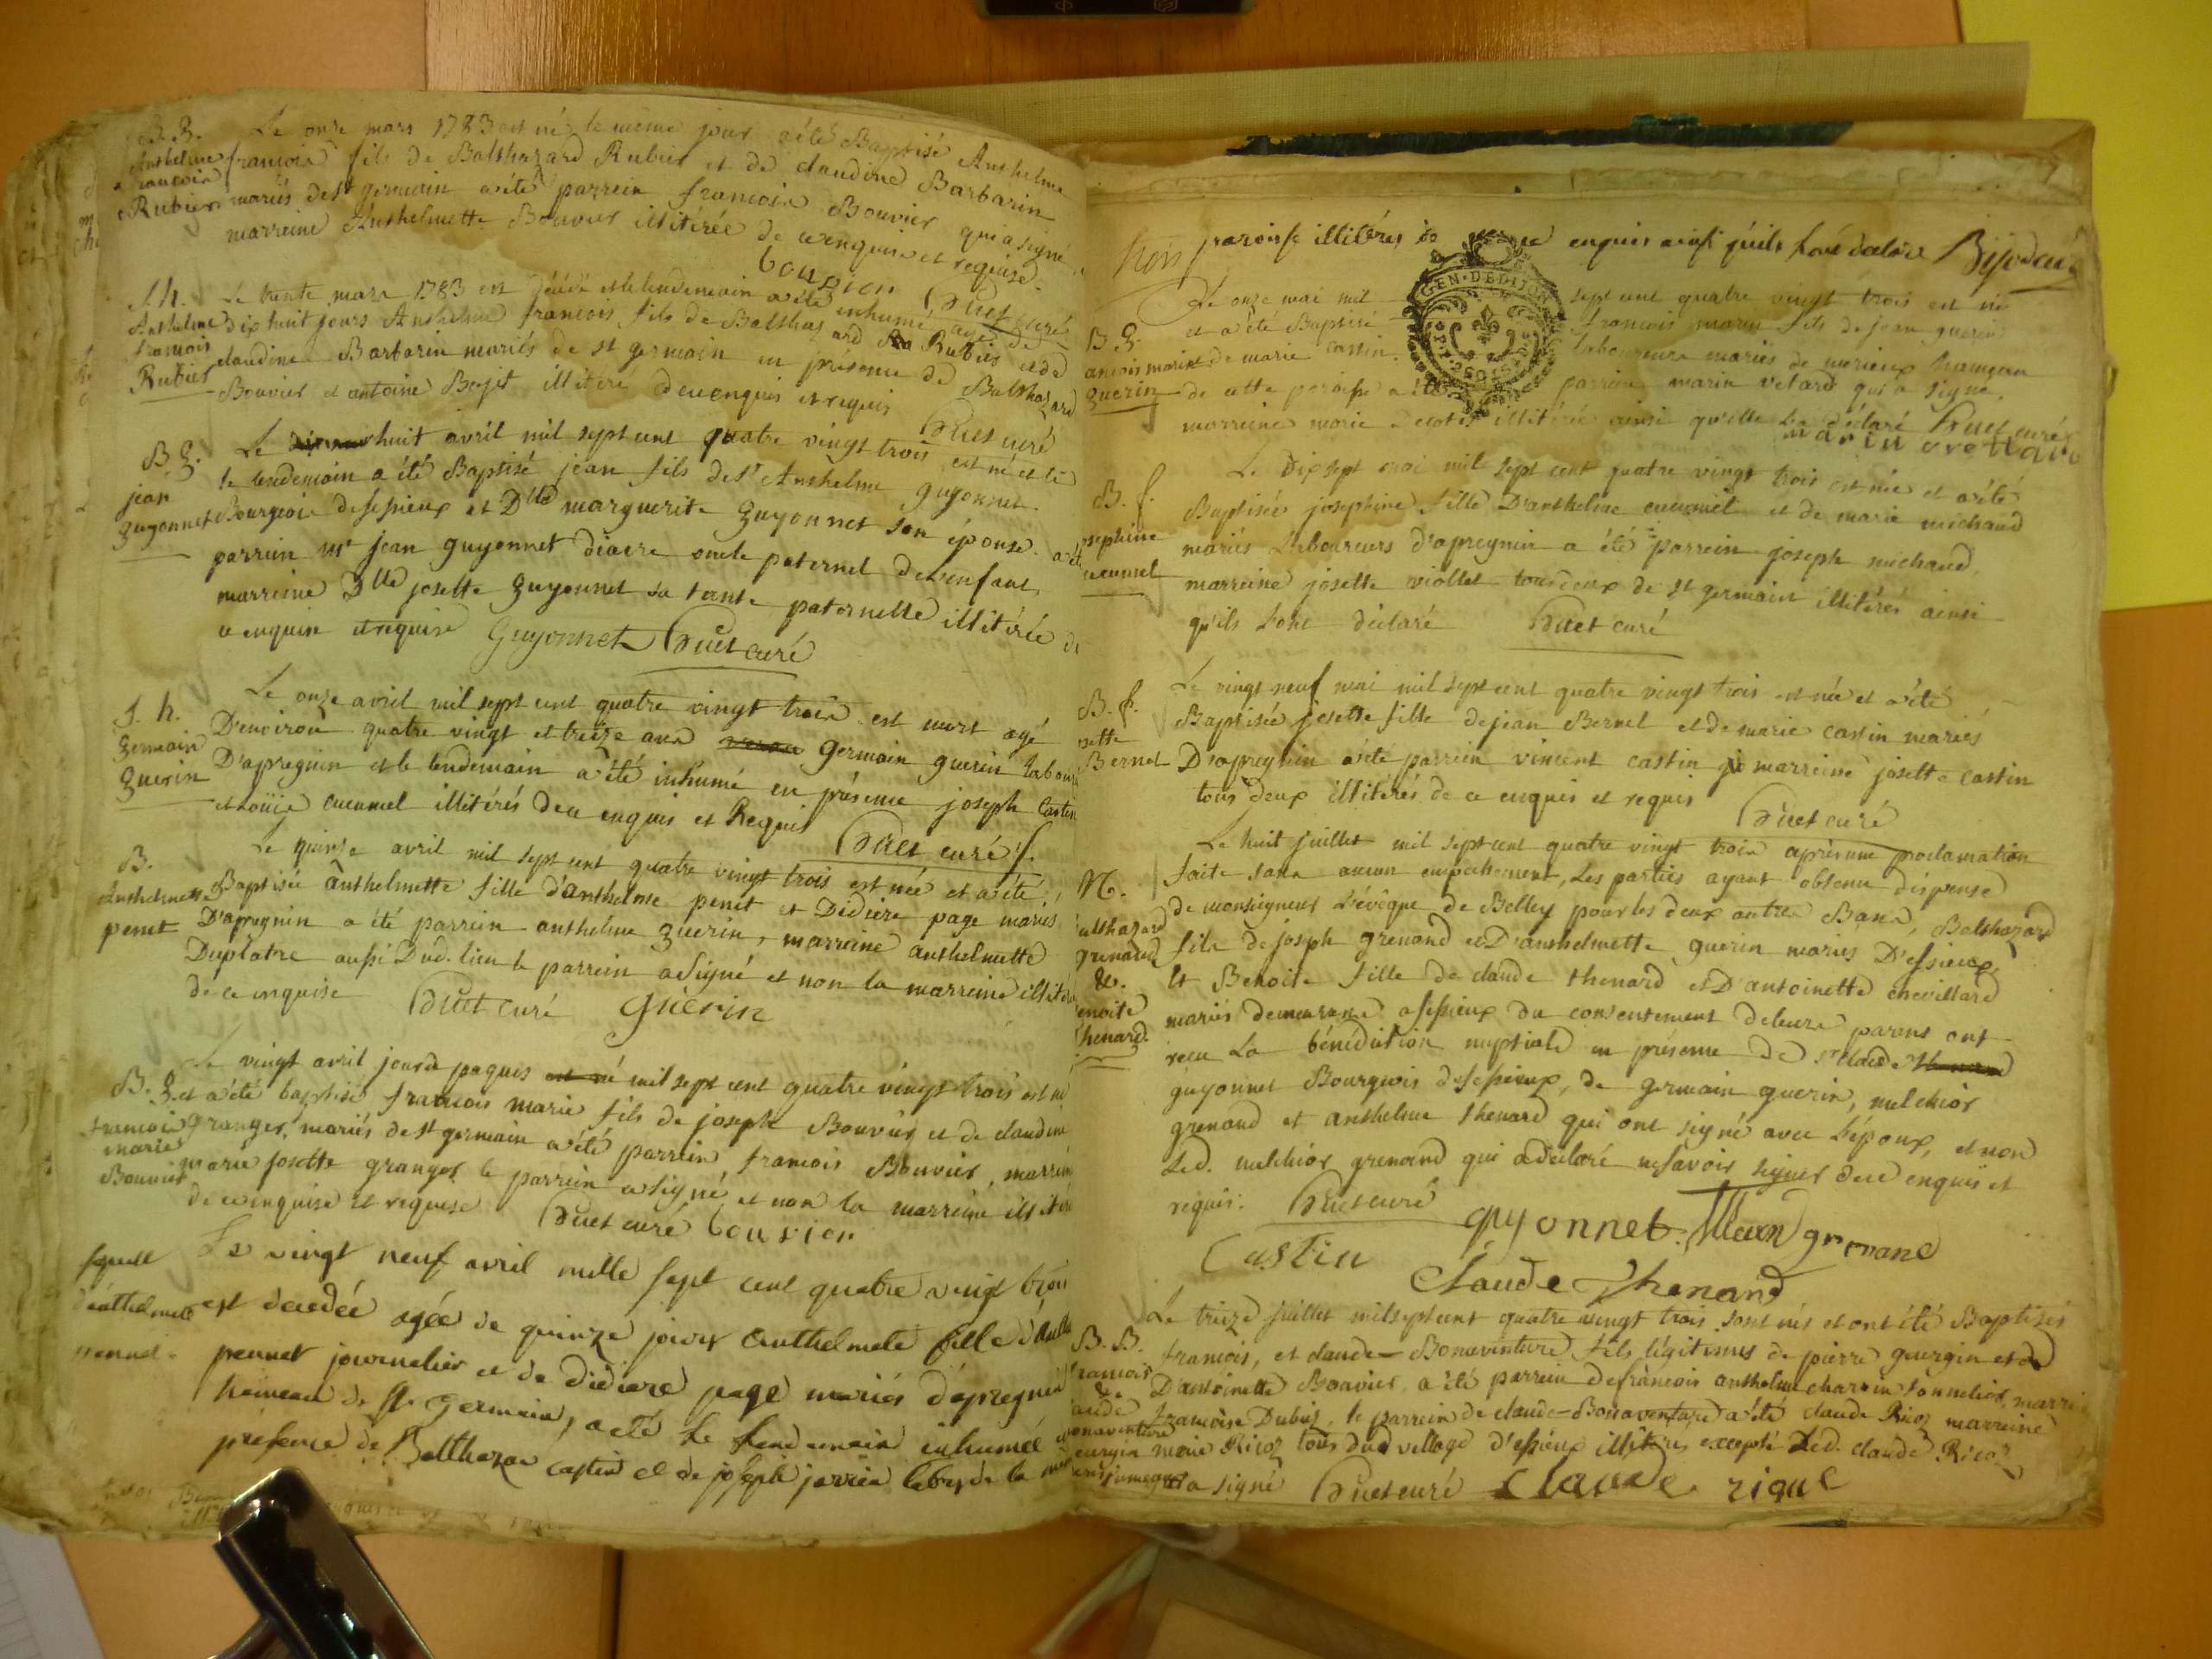 B. g.
Anthelme
francois
Rubier
Le onze mars 1783 est né le même jour a été Baptisé Anthelme
francois fils de Balthazard Rubier et de claudine Barbarin
mariés de st germain a été parrein francois Bouvier qui a signé
marreine Anthelmette Bouvier illitérée de ce enquise et requise.
bouvier Huet curé
S. h.
Anthelme
francois
Rubier
Le trente mars 1783 est décédé et le lendemain a été inhumé agé de
dix huit jours Anthelme francois fils de Balthazard Rubier et de
claudine Barbarin mariés de st germain en présence de Balthazard
Bouvier et antoine Bojit illitéré de ce enquis et requis
Huet curé
B. g.
jean
guyonnet
Le huit avril mil sept cent quatre vingt trois est né et le
lendemain a été Baptisé jean fils de sr Anthelme guyonnet
Bourgeois dessieux et Dlle marguerite guyonnet son épouse. a été
parrein mr jean guyonnet diacre oncle paternel de l'enfant,
marreine Dlle josette guyonnet sa tante paternelle illitérée de
ce enquise et requise Guyonnet Huet curé
S. h.
germain
guerin
Le onze avril mil sept cent quatre vingt trois est mort agé
D'environ quatre vingt et treize ans germain guerin
D'apregnin et le lendemain a été inhumé en présence joseph Castin
et loüis cucumel illitérés de ce enquis et Requis
Huet curé
B. f.
Anthelmette
penet
Le quinze avril mil sept cent quatre vingt trois est née et a été
Baptisée anthelmette fille d'anthelme penet et Didiere page mariés
D'apregnin a été parrein anthelme guerin, marreine anthelmette
Duplatre aussi Dud. lieu le parrein a signé et non la marreine
de ce enquise Huet curé Guerin
B. g.
francois
marie
Bouvier
Le vingt avril jour de paques mil sept cent quatre vingt trois est né
et a été baptisé francois marie fils de joseph Bouvier et de claudine
granger, mariés de st germain a été parrein francois Bouvier, marreine
marie josette granger le parrein a signé et non la marreine
de ce enquise et requise Huet curé bouvier
Sepult
d'anthelmete
pennet
Le vingt neuf avril mille sept cent quatre vingt trois
est decedée agée de quinze jours anthelmete fille
pennet journelier et de didiere page mariés d'apregnin
hameau de st germain, a eté le lendemain inhumée en
présence de Balthazar castin et de joseph jarrin
paroisse illitérés enquis ainsi qu'ils l'ont declaré
B g.
francois marin
guerin
Le onze mai mil sept cent quatre vingt trois est né
et a été Baptisé francois marin fils de jean guerin
et de marie castin laboureurs mariés de hameau
de cette paroisse a été parrein marin vetard qui a signé,
marreine marie illitérée ainsi qu'elle l'a déclaré Huet curé
marin
B. f.
josephine
cucumel
Le dix sept mai mil sept cent quatre vingt trois est née et a été
Baptisée josephine fille D'anthelme cucumel et de marie michaud
mariés Laboureurs d'apregnin a été parrein joseph michaud,
marreine josette viollet tous deux de st germain illitérés ainsi
qu'ils l'ont déclaré Huet curé
B. f.
josette
Bernet
Le vingt neuf mai mil sept cent quatre vingt trois est née et a été
Baptisée josette fille de jean Bernet et de marie castin mariés
D'apregnin a été parrein vincent castin marreine josette castin
tous deux illitérés de ce enquis et requis
Huet curé
M.
Balthazard
grenand
&.
Benoite
thenard.
Le huit juillet mil sept cent quatre vingt trois après une proclamation
faite sans aucun empechement, Les parties ayant obtenu dispense
de monseigneur L'évêque de Belley pour les deux autres Bans, Balthazard
fils de joseph grenand et D'anthelmette guerin mariés D'essieux,
Et Benoite fille de claude thenard et D'antoinette chevillard
mariés demeurans a essieux du consentement de leurs parens ont
recu La bénédiction nuptiale en présence de
guyonnet Bourgeois d'essieux, de germain guerin, melchior
grenand et anthelme thenard qui ont signé avec L'époux, et non
Led. melchior grenand qui a déclaré ne savoir signer de ce enquis et
requis. Huet curé
guyonnet grenand
Castin Claude Thenard
B. B.
francois
&
claude
bonaventure
jumeaux
Le treize juillet mil sept cent quatre vingt trois sont nés et ont été Baptisés
francois, et claude-Bonaventure fils légitimes de pierre guergin et de
D'antoinette Bouvier, a été parrein de francois anthelme charvin tonnelier, marreine
francoise Dubus, le parrein de claude-Bonaventure a été claude Ricoz marreine
marie Ricoz tous dud village d'essieux illitérés excepté Led. claude Ricoz
qui a signé Huet curé claude rique
GEN. DE DIJON